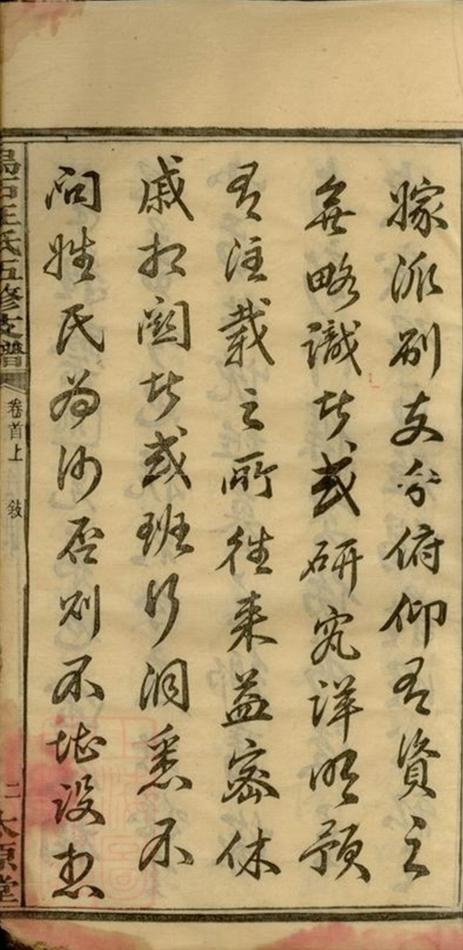 嫁派別支分俯仰有資之
無略識者或研究詳明預
有注載之所往来益密休
戚相関者或班行洞悉不
問姓氏為何否則不堪設想
烏石王氏五修支譜
卷首上 敘 二 太原堂